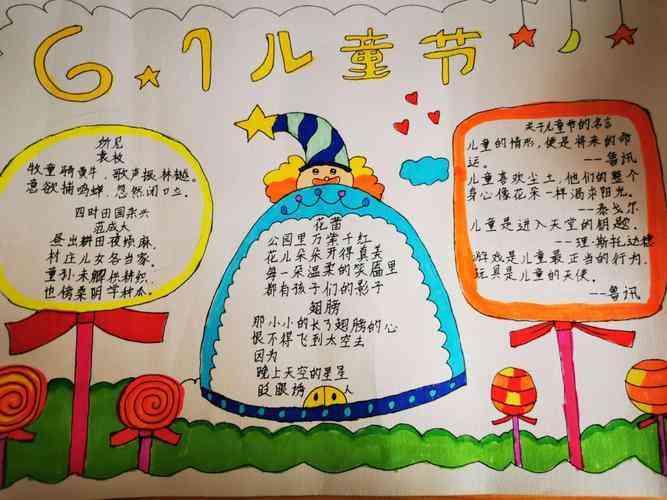 6.1儿童节
所见
袁枚
牧童骑黄牛,歌声振林樾。
意欲捕鸣蝉,忽然闭口立。
四时田园杂兴
范成大
昼出耕田夜绩麻,
村庄儿女各当家,
童孙未解供耕织,
也傍桑阴学种瓜。
花蕾
公园里万紫千红
花儿朵朵开得真美
每一朵温柔的笑靥里
都有孩子们的影子
翅膀
那小小的长了翅膀的心
恨不得飞到太空去
因为
晚上天空的星星
眨眼诱人
关于儿童节的名言
儿童的情形,便是将来的命
运。
--鲁讯
儿童喜欢尘土,他们的整个
身心像花朵一样渴求阳光。
--泰戈尔
儿童是进入天堂的钥匙。
--理·斯托达德
游戏是儿童最正当的行为,
玩具是儿童的天使。
--鲁讯